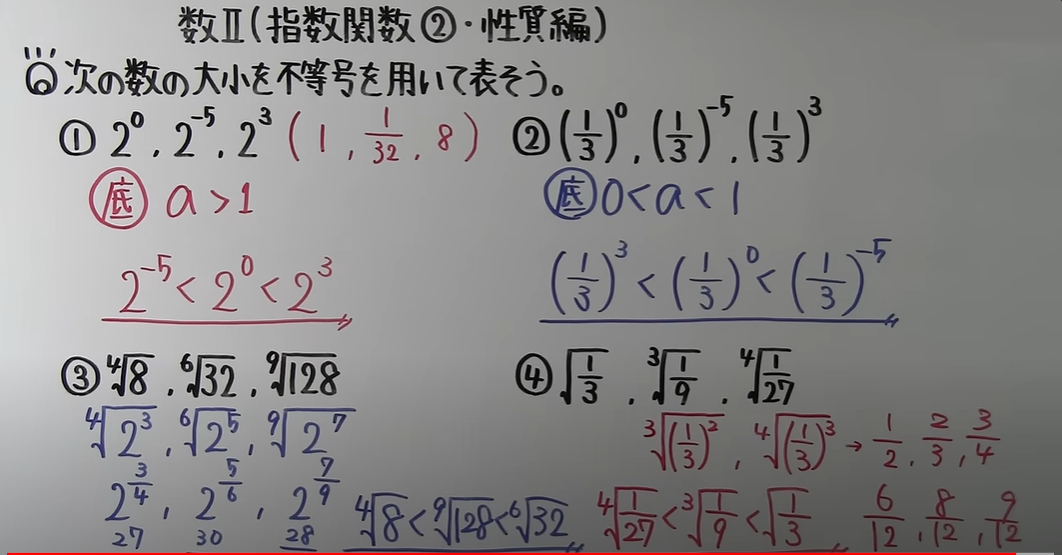 数Ⅱ(指数関数②・性質編)
◎次の数の大小を不等号を用いて表そう。
① 2⁰, 2⁻⁵, 2³ (1, 1/32, 8)
底 a>1
2⁻⁵<2⁰<2³
② (1/3)⁰, (1/3)⁻⁵, (1/3)³
底 0<a<1
(1/3)³<(1/3)⁰<(1/3)⁻⁵
③ ⁴√8, ⁶√32, ⁹√128
⁴√2³, ⁶√2⁵, ⁹√2⁷
2^(3/4), 2^(5/6), 2^(7/9)
27 30 28
⁴√8<⁹√128<⁶√32
④ √(1/3), ³√(1/9), ⁴√(1/27)
³√(1/3)², ⁴√(1/3)³ → 1/2, 2/3, 3/4
6/12, 8/12, 9/12
⁴√(1/27)<³√(1/9)<√(1/3)